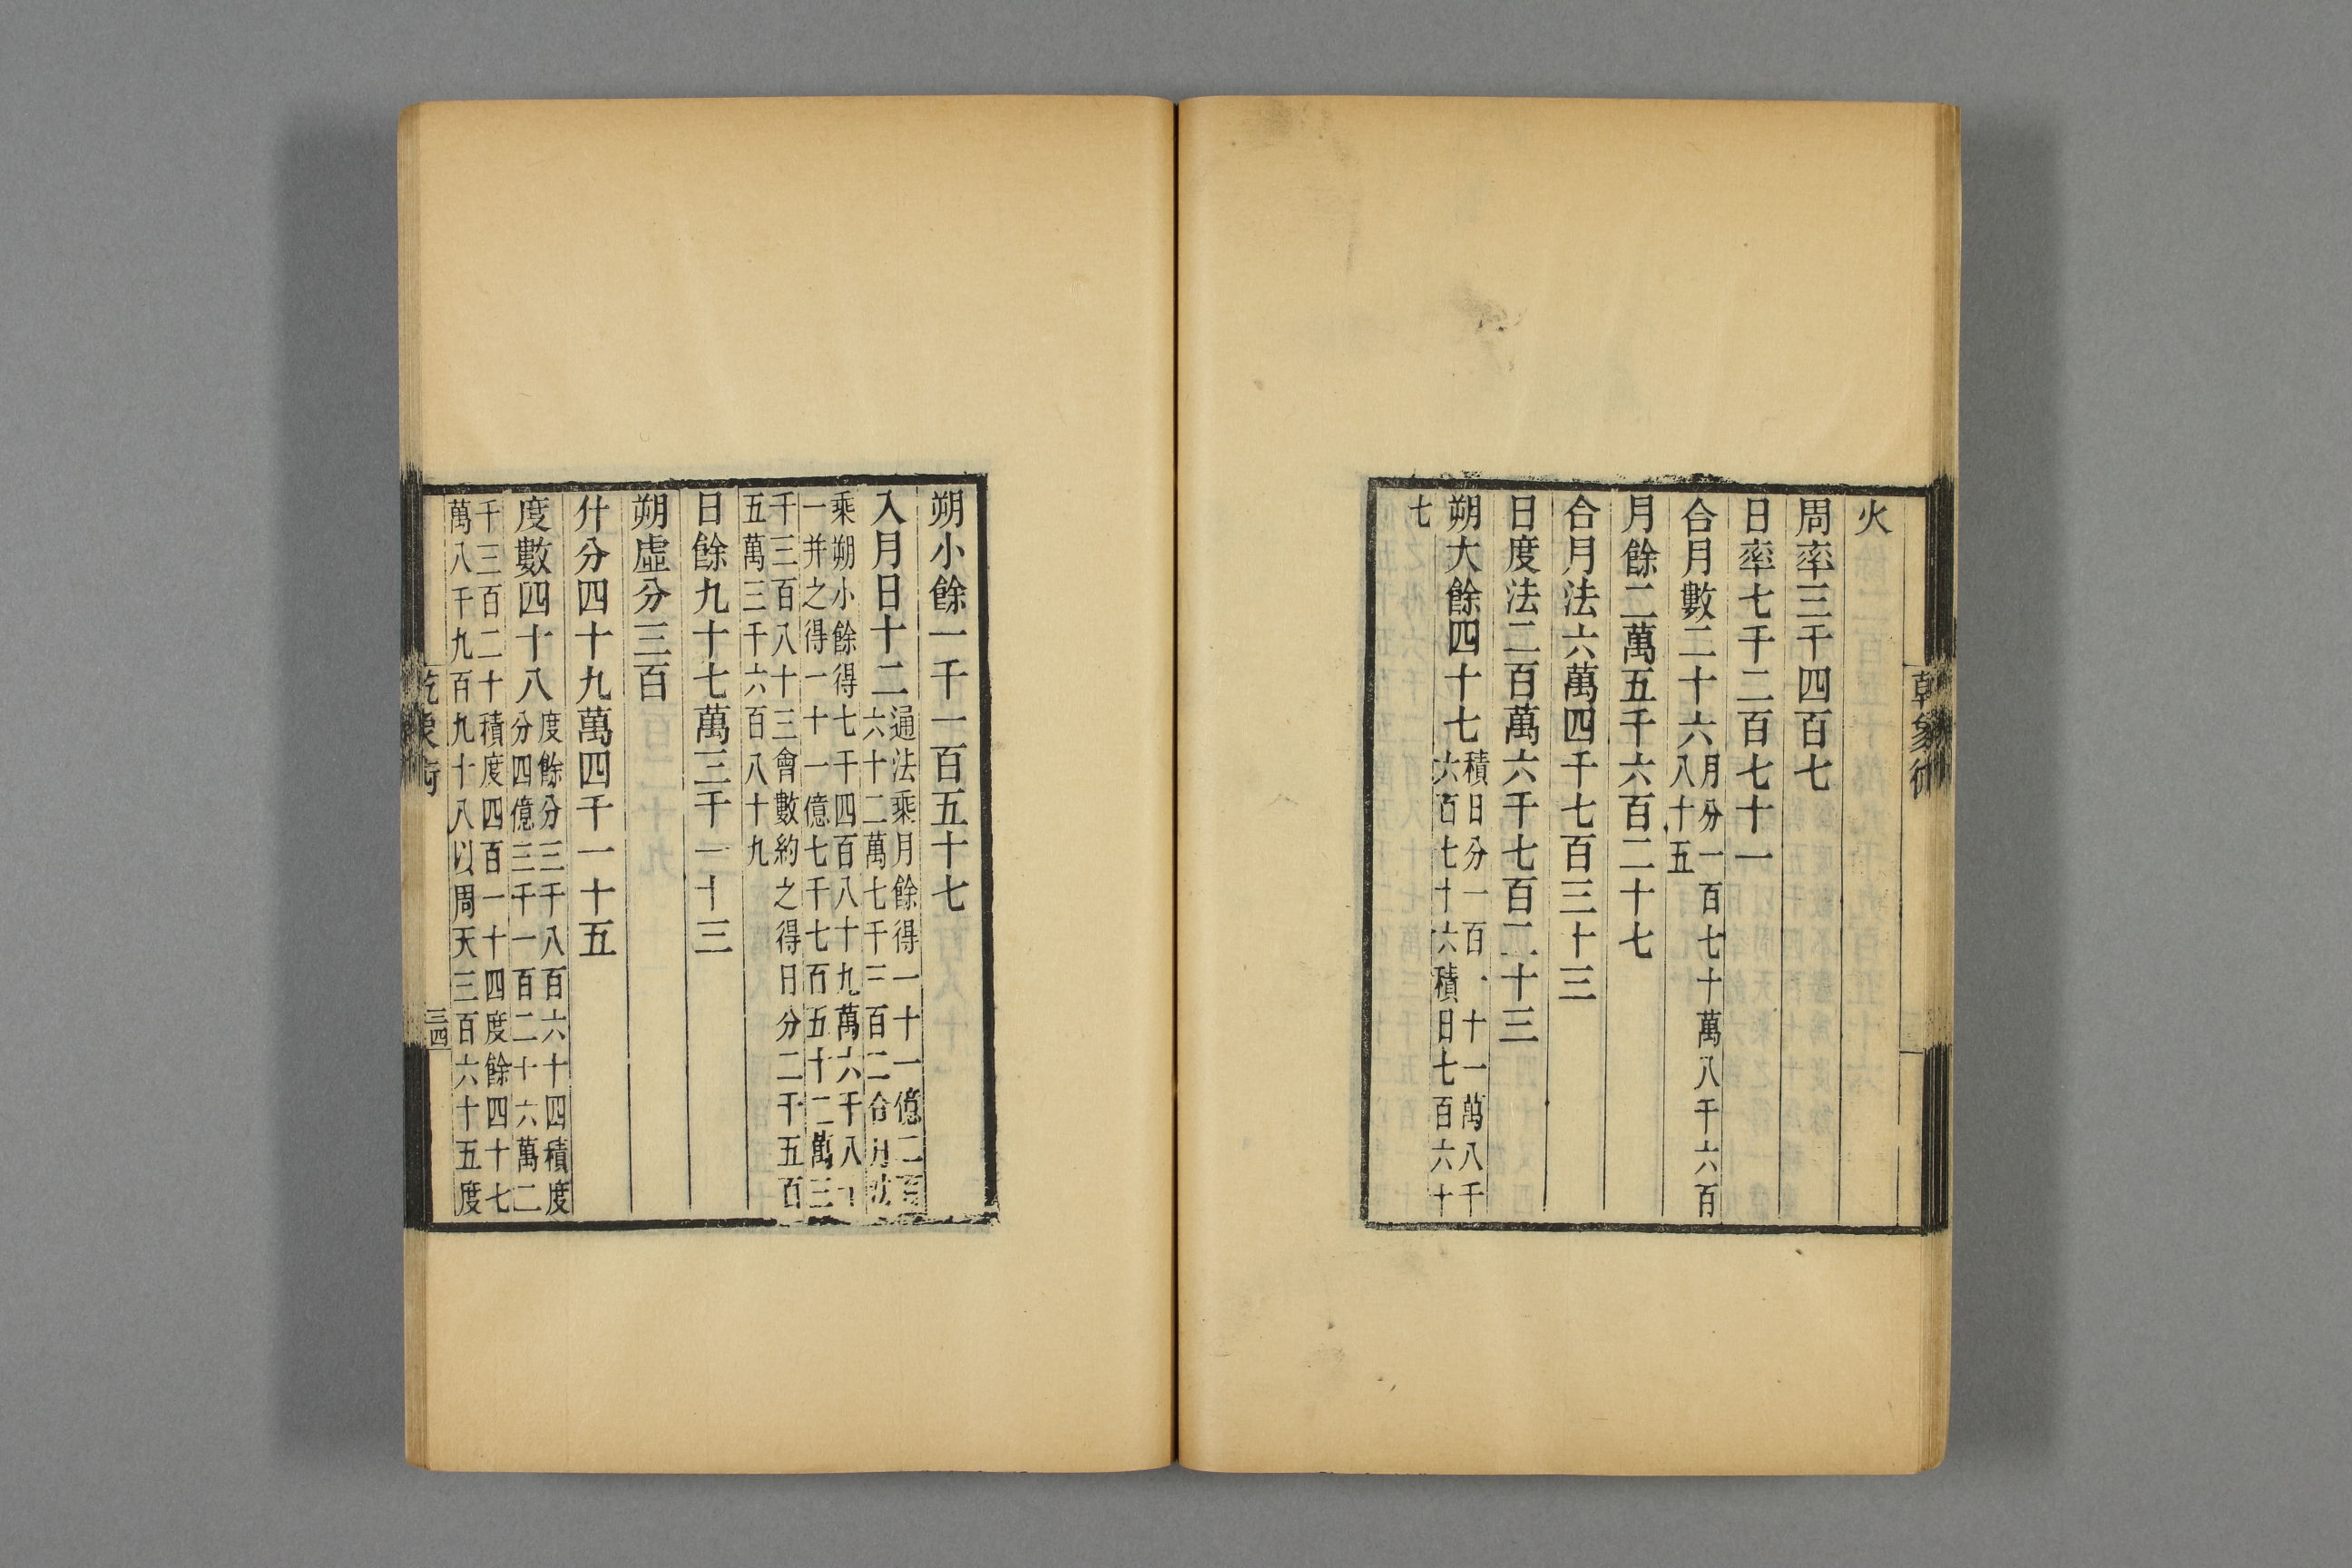 火
周率三千四百七
日率七千二百七十一
合月數二十六月分一百七十萬八千六百
八十五
月餘二萬五千六百二十七
合月法六萬四千七百三十三
日度法二百萬六千七百二十三
朔大餘四十七積日分一百一十一萬八千
六百七十六積日七百六十
七
朔小餘一千一百五十七
入月日十二通法乘月餘得一十一億二百
六十二萬七千三百二合月法
乘朔小餘得七千四百八十九萬六千八十
一并之得一十一億七千七百五十二萬三
千三百八十三會數約之得日分二千五百
五萬三千六百八十九
日餘九十七萬三千一十三
朔虛分三百
什分四十九萬四千一十五
度數四十八度餘分三千八百六十四積度
分四億三千一百二十六萬二
千三百二十積度四百一十四度餘四十七
萬八千九百九十八以周天三百六十五度
乾象術
三四